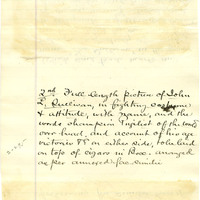 2nd. Full length picture of John
L. Sullivan, in fighting costume
& attitude, with name, and the
words champion Pugilist of the world
over head, and account of his age
victories &c on either side, to be laid
on top of cigars in Box. arranged
as per annexed fac-simile